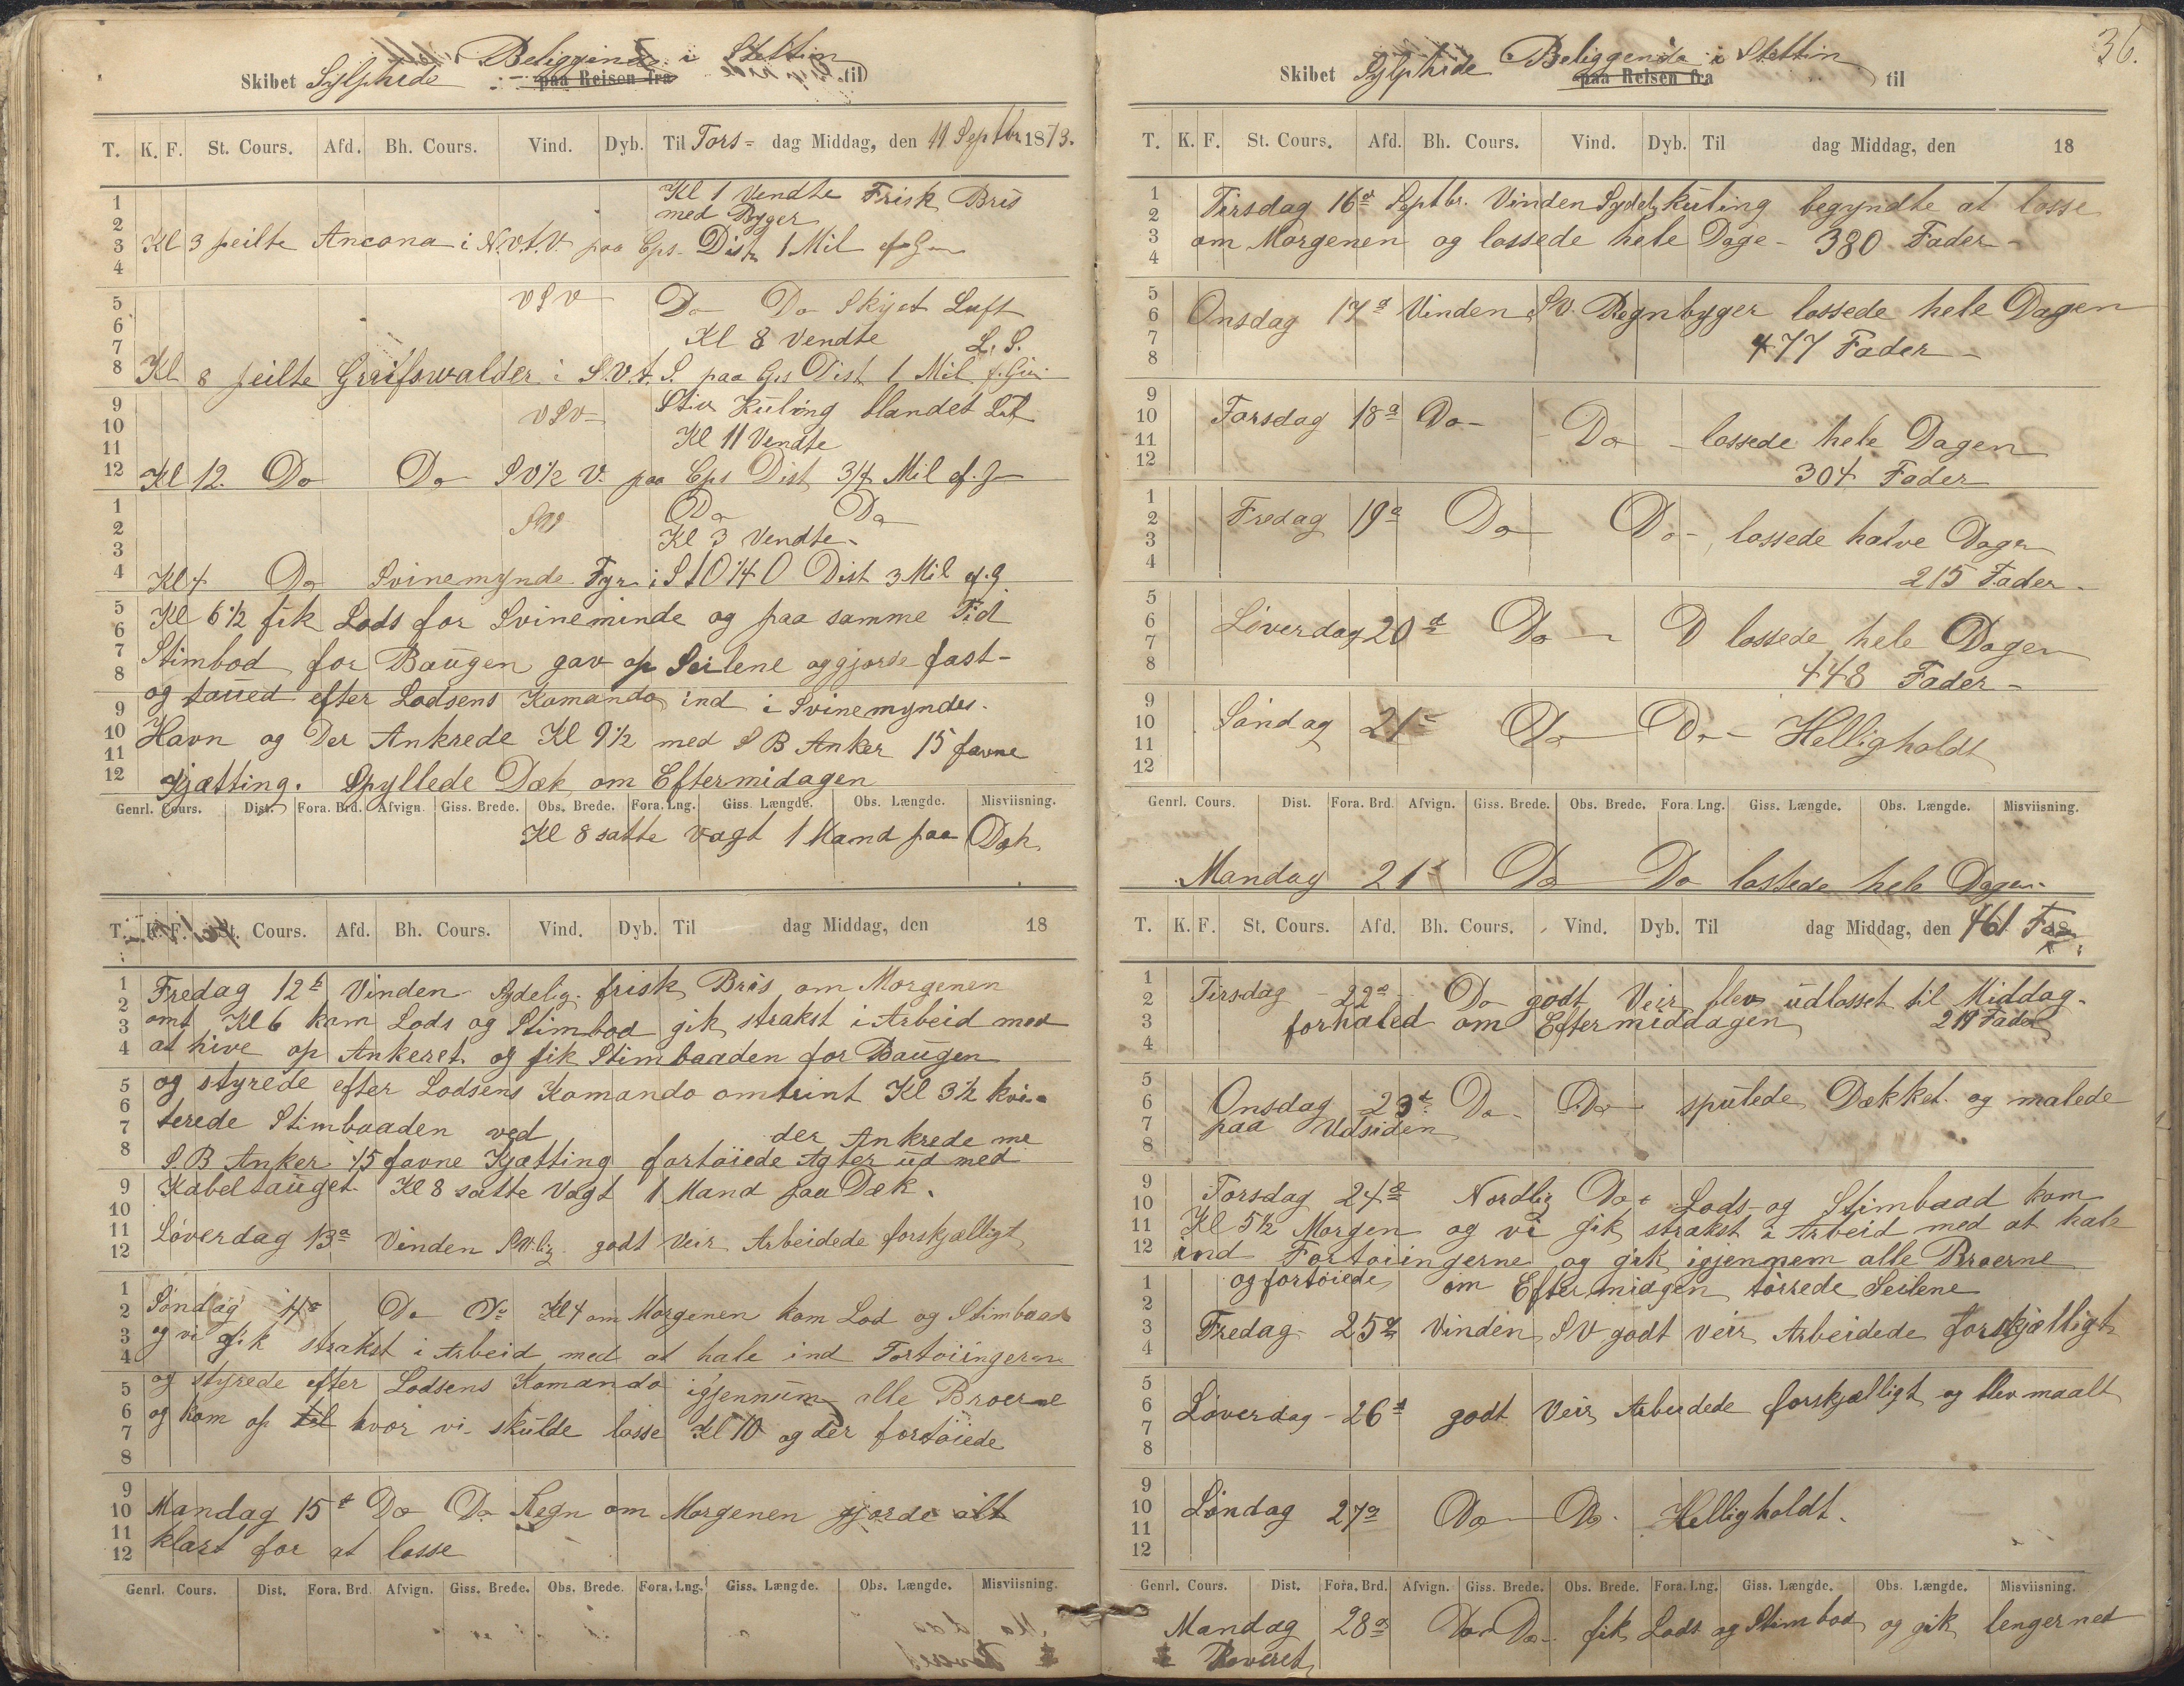 Beliggende i Stettin
Skibet Sylphide paa Reisen fra til
T. K. F. St. Cours. Afd. Bh. Cours. Vind. Dyb. Til Tors= dag Middag, den 11 Septbr. 1873.
1 2 3 4 5 6 7 8 9 10 11 12
Kl 1 Vendte Frisk Bris
med Byger
Kl 3 peilte Ancona i N.V.t.V paa Cps. Dist 1 Mil
VSV Do Do Skyet Luft
Kl 8 Vendte L. S.
Kl 8 peilte Greifswalder i S.V.t.S. paa Cps Dist 1 Mil
VSV Stiv Kuling blandet Luft
Kl 11 Vendte
Kl 12. Do Do SV½ V. paa Cps Dist 3/4 Mil
1 2 3 4 5 6 7 8 9 10 11 12
Do Do
Kl 3 Vendte
Kl 4 Do Svinemynde Fyr i StO¼O Dist 3 Mil
Kl 6½ fik Lods for Svineminde og paa samme Tid
Stimbod for Baugen gav op Seilene og gjorde fast-
og taued efter Lodsens Komando ind i Svinemyndes-
Havn og Der Ankrede Kl 9½ med S B Anker 15 favne
Kjætting. Spyllede Dæk om Eftermidagen
Genrl. Cours. Dist. Fora. Brd. Afvign. Giss. Brede. Obs. Brede. Fora. Lng. Giss. Længde. Obs. Længde. Misviisning.
Kl 8 satte vagt 1 Mand paa Dæk
T. K. F. St. Cours. Afd. Bh. Cours. Vind. Dyb. Til dag Middag, den 18
1 2 3 4 5 6 7 8 9 10 11 12
Fredag 12t Vinden Sydelig. frisk Bris om Morgenen
omt Kl 6 kom Lods og Stimbod gik strakst i Arbeid med
at hive op Ankeret og fik Stimbaaden for Baugen
og styrede efter Lodsens Komando omtrint Kl 3½ kvi-
terede Stimbaaden ved der Ankrede me
S.B Anker 45 favne Kjætting fortøiede Agter ud med
Kabeltauget. Kl 8 satte Vagt 1 Mand paa Dæk.
Løverdag 13d Vinden SVlig godt Veir Arbeidede forskjælligt
1 2 3 4 5 6 7 8 9 10 11 12
Søndag 14d Do Do Kl 4 om Morgenen kom Lod og Stimbaad
og vi gik strakst i Arbeid med at hale ind Fortøiingerne
og styrede efter Lodsens Komando igjennum alle Broerne
og kom op til hvor vi skulde losse Kl 10 og der fortøiede
Mandag 15d Do Do Regn om Morgenen gjorde alt
klart for at losse
Genrl. Cours. Dist. Fora. Brd. Afvign. Giss. Brede. Obs. Brede. Fora. Lng. Giss. Længde. Obs. Længde. Misviisning.
36.
Beliggende i Stettin
Skibet Sylphide paa Reisen fra til
T. K. F. St. Cours. Afd. Bh. Cours. Vind. Dyb. Til dag Middag, den 18
1 2 3 4 5 6 7 8 9 10 11 12
Tirsdag 16d Septbr. Vinden Sydely kuling begyndte at losse
om Morgenen og lossede hele Dage - 380 Fader -
Onsdag 17d Vinden SV. Regnbyger lossede hele Dagen
477 Fader -
Torsdag 18d Do - Do - lossede hele Dagen
304 Fader
1 2 3 4 5 6 7 8 9 10 11 12
Fredag 19d Do Do - lossede halve Dagen
215 Fader -
Løverdag 20d Do - D lossede hele Dagen
448 Fader -
Søndag 21d Do - Do - Helligholdt
Genrl. Cours. Dist. Fora. Brd. Afvign. Giss. Brede. Obs. Brede. Fora. Lng. Giss. Længde. Obs. Længde. Misviisning.
Mandag 21d Do Do lossede hele Dagen.
T. K. F. St. Cours. Afd. Bh. Cours. Vind. Dyb. Til dag Middag, den 461
1 2 3 4 5 6 7 8 9 10 11 12
Tirsdag - 22d Do godt Veir blev udlosset til Middag-
forhaled om Eftermiddagen 219 Fader
Onsdag 23d Do - Do - spulede Dækket og malede
paa Udsiden
Torsdag 24d Nordlig Do - Lods - og Stimbaad kom
Kl 5½ Morgen og vi gik strakst i Arbeid med at hale
ind Fortøiingerne og gik igjennem alle Broerne
1 2 3 4 5 6 7 8 9 10 11 12
og fortøiede om Eftermidgen tørrede Seilene
Fredag - 25d Vinden SV godt veir Arbeidede forskjælligt
Løverdag - 26d godt Veir Arbeidede forskjælligt og blev maalt
Søndag 27d Do - Do. Helligholdt.
Genrl. Cours. Dist. Fora. Brd. Afvign. Giss. Brede. Obs. Brede. Fora. Lng. Giss. Længde. Obs. Længde. Misviisning.
Mandag 28d Do Do - fik Lods og Stimbod og gik lenger ned
Reveret